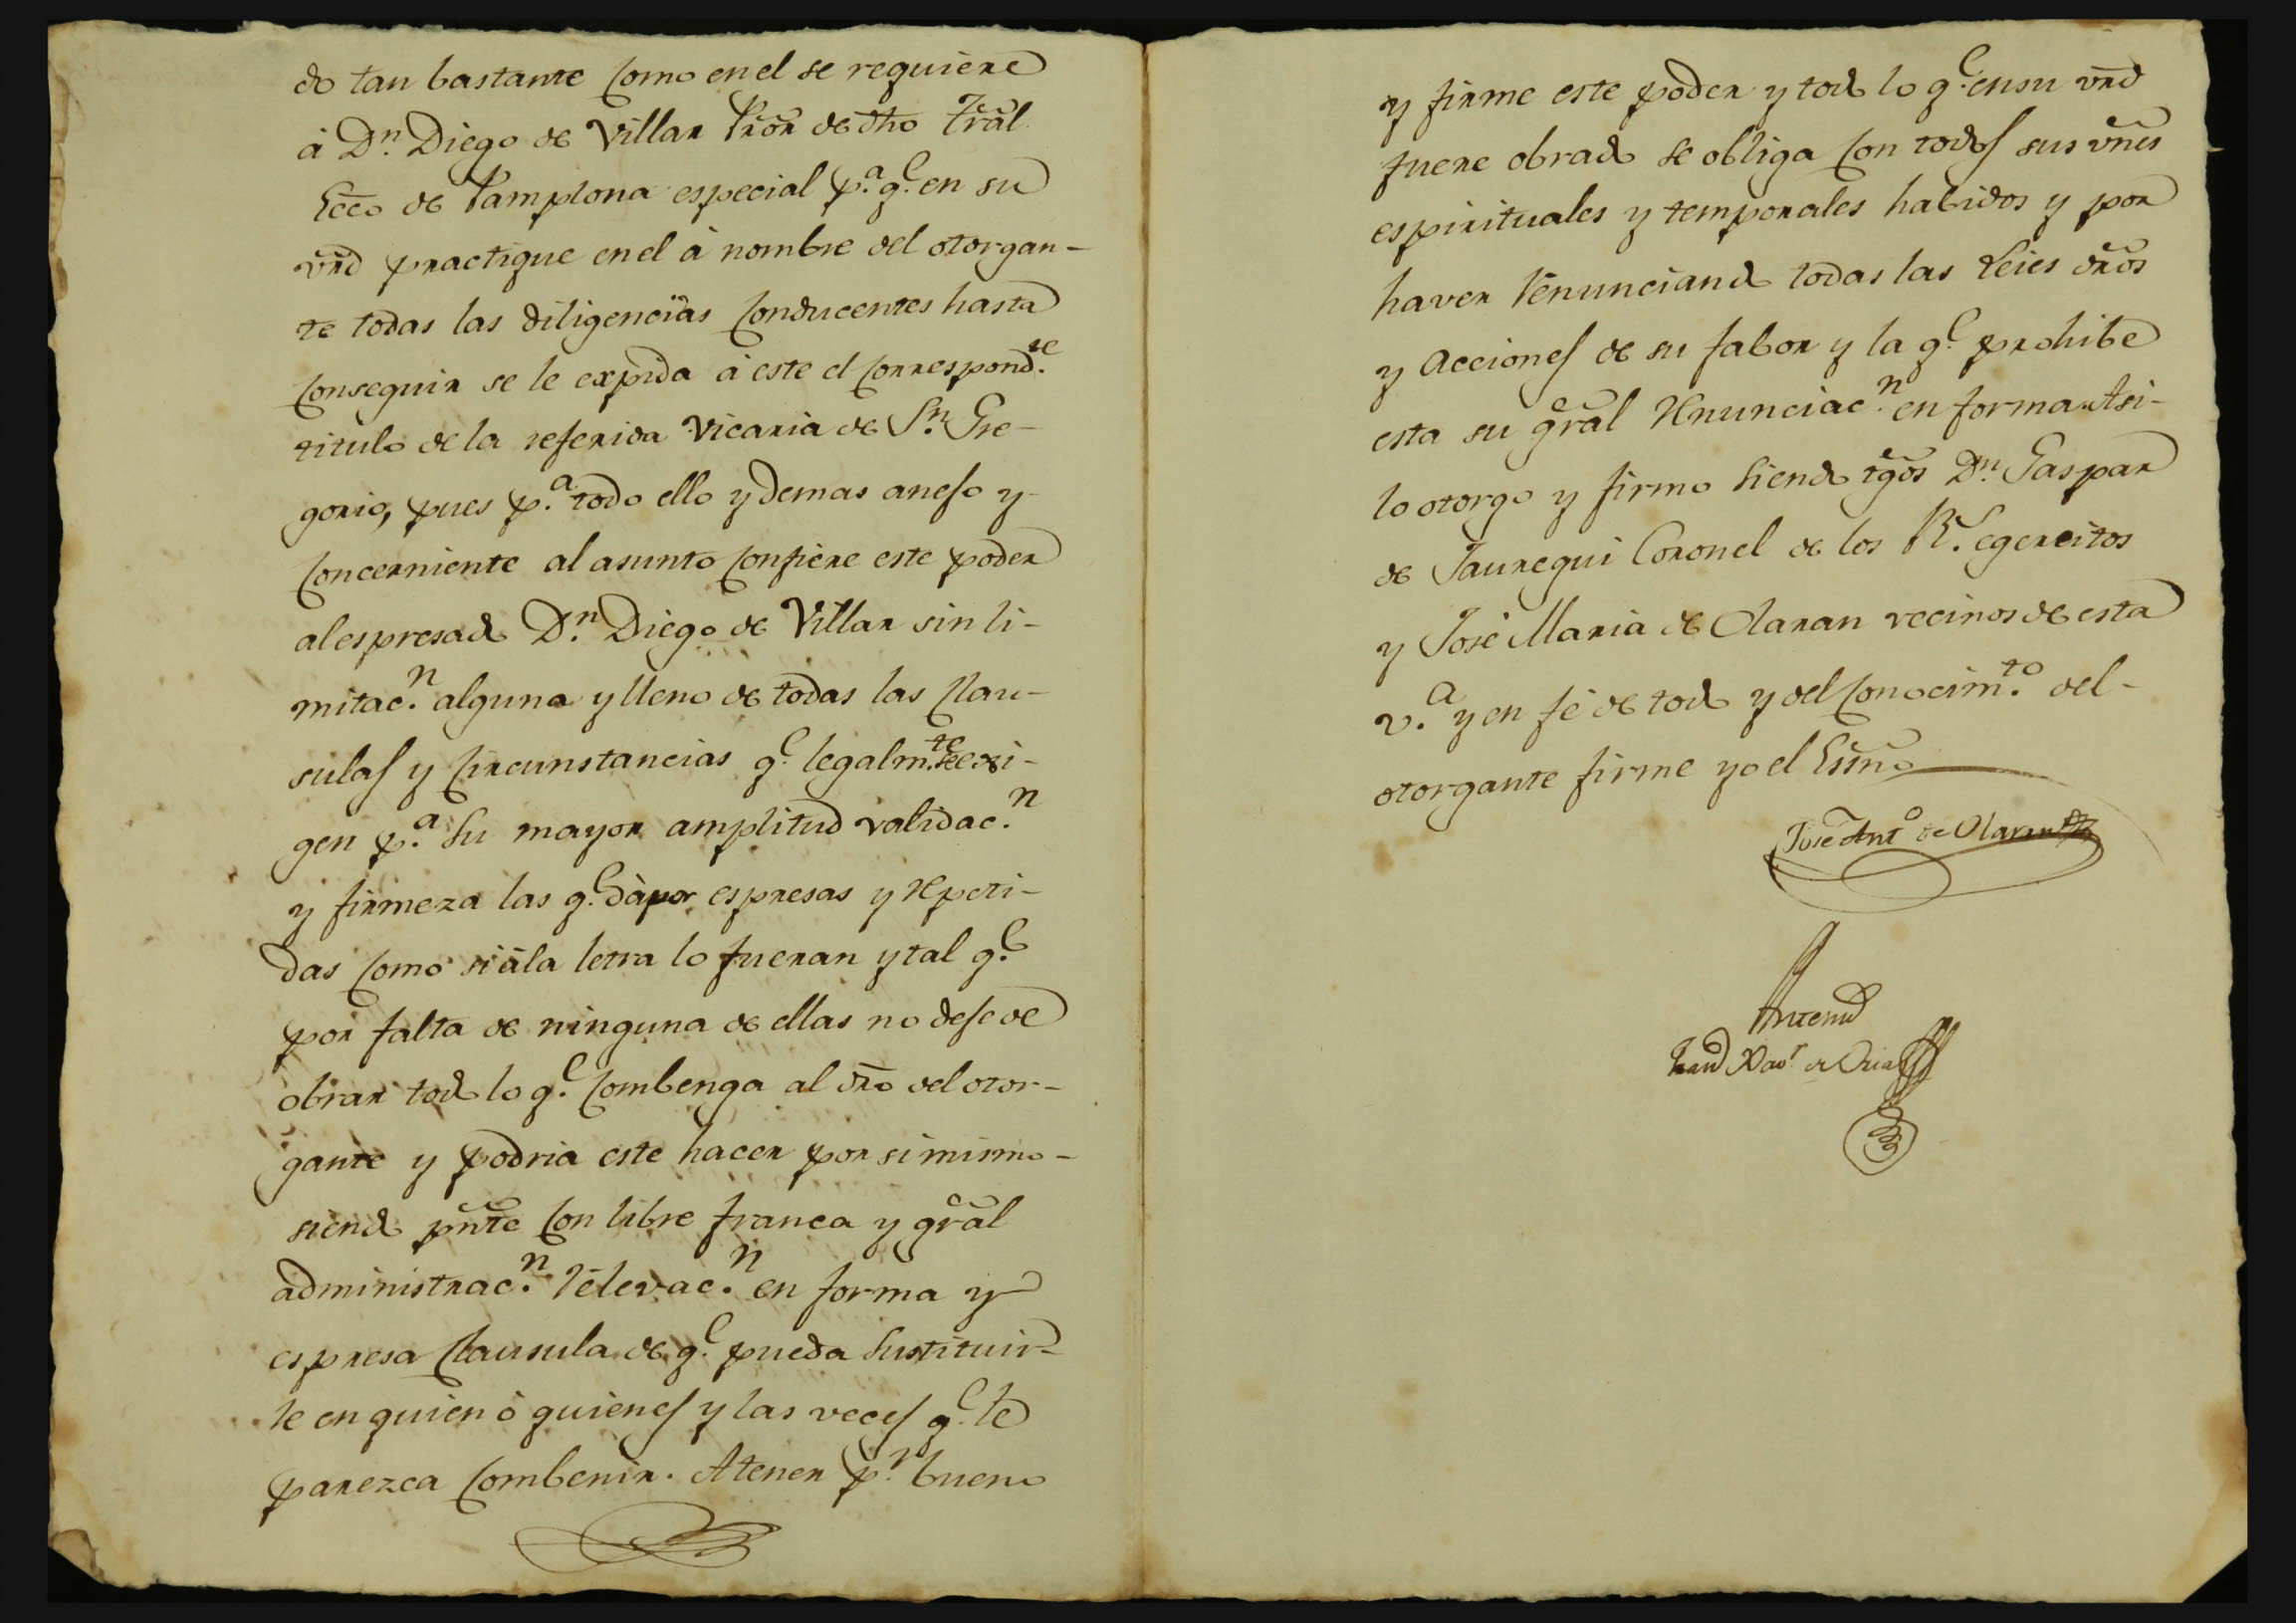 do tan bastante como en el se requiere
à Dn. Diego de Villar Pror de dho Tral
Ecco de Pamplona especial pa. qe. en su
vrd practique en el à nombre del otorgan-
te todas las diligencias conducentes hasta
conseguir se le expida à este el correspondte.
titulo de la referida Vicaria de Sn. Gre-
gorio, pues pa. todo ello y demas anejo y
concerniente al asunto confiere este poder
al espresado Dn. Diego de Villar sin li-
mitacn. alguna y lleno de todas las clau-
sulas y circunstancias qe. legalmte. se exi-
gen pa. su mayor amplitud validacn.
y firmeza las qe. dà por espresas y repeti-
das como si à la letra lo fueran y tal qe.
por falta de ninguna de ellas no deje de
obrar todo lo qe. combenga al dro del otor-
gante y podria este hacer por si mismo-
siendo pnte con libre franca y gral
administracn. relevacn. en forma y
espresa clausula de qe. pueda sustituir-
le en quien ò quienes y las veces qe. le
parezca combenir. A tener pr. bueno
y firme este poder y todo lo qe. en su vrd
fuere obrado se obliga con todos sus vnes
espirituales y temporales habidos y por
haver renunciando todas las Leies dros
y acciones de su fabor y la qe. prohibe
esta su gral renunciacn. en forma. Asi-
lo otorgo y firmo siendo tgos Dn. Gaspar
de Jauregui Coronel de los Rs. egercitos
y José Maria de Olaran vecinos de esta
va. y en fé de todo y del conocimto. del-
otorgante firme yo el Essno
José Anto de Olaran
Antemi
Xavr de Oria